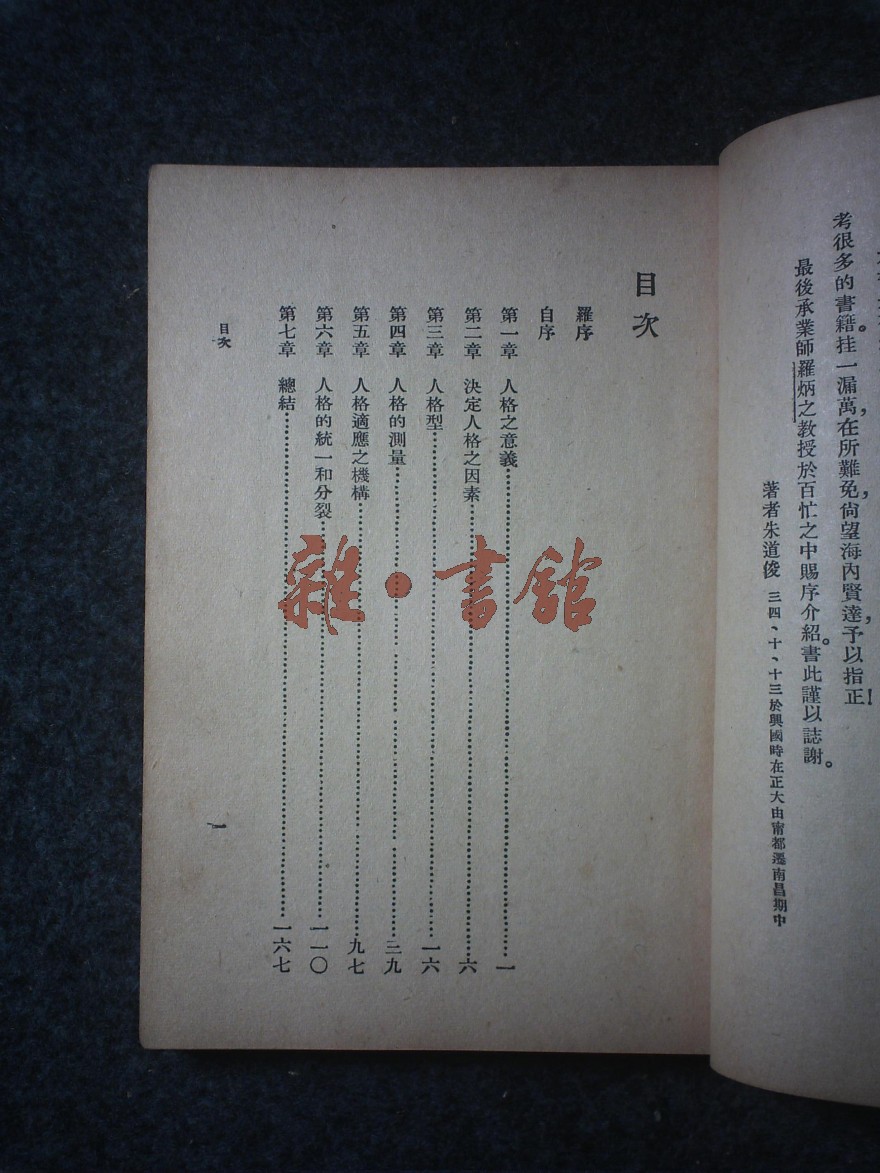 考很多的書籍，挂一漏萬，在所難免，尚望海內賢達，予以指正！
最後承業師羅炳之教授於百忙之中賜序介紹。書此謹以誌謝。
著者朱道俊 三四、十、十三於興國時在正大由甯都遷南昌期中
目次
羅序
自序
第一章 人格之意義……一
第二章 決定人格之因素……六
第三章 人格型……一六
第四章 人格的測量……三九
第五章 人格適應之機構……九七
第六章 人格的統一和分裂……一一〇
第七章 總結……一六七
目次
一
雜·書館